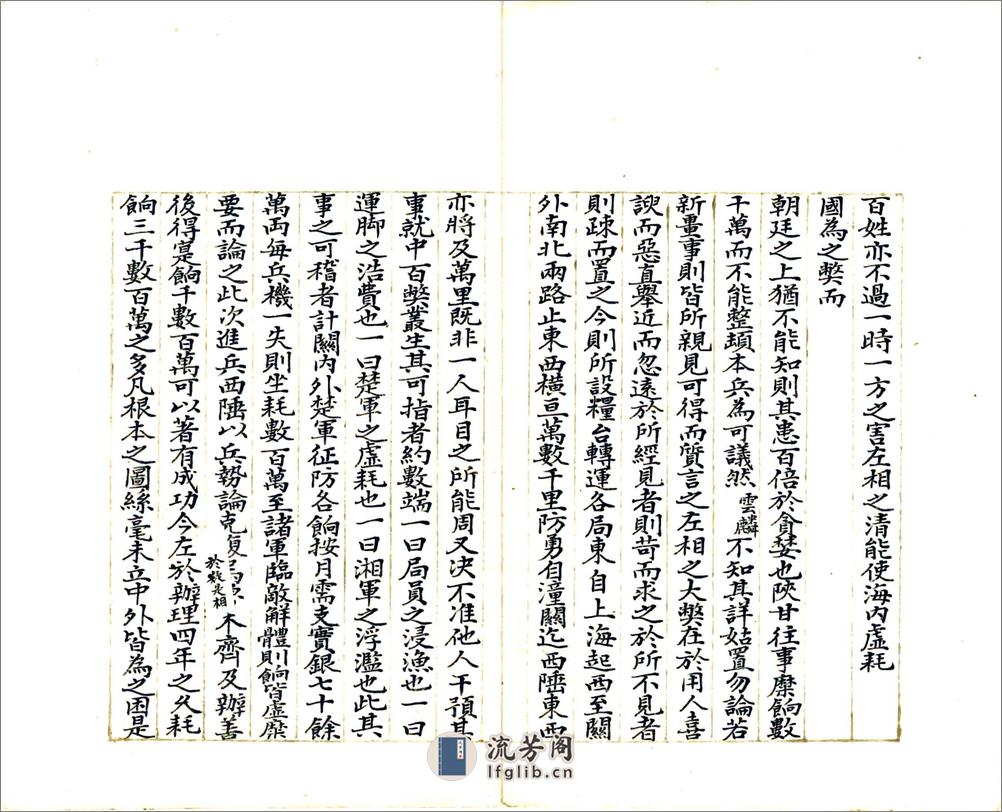 百姓亦不過一時一方之害左相之清能使海內虛耗
國為之獘而
朝廷之上猶不能知則其患百倍於貪婪也陝甘往事糜餉數
千萬而不能整頓本兵為可議然雲麟不知其詳姑置勿論若
新畺事則皆所親見可得而質言之左相之大獘在於用人喜
諛而惡直舉近而忽遠於所經見者則苛而求之於所不見者
則疎而置之今則所設糧台轉運各局東自上海起西至關
外南北兩路止東西橫亘萬數千里防勇自潼關迄西陲東西
亦將及萬里既非一人耳目之所能周又決不准他人干預其
事就中百獘叢生其可指者約數端一曰局員之浸漁也一曰
運脚之浩費也一曰楚軍之虛耗也一曰湘軍之浮濫也此其
事之可稽者計關內外楚軍征防各餉按月需支實銀七十餘
萬両每兵機一失則坐耗數百萬至諸軍臨敵解體則餉皆虛糜
要而論之此次進兵西陲以兵勢論克復木齊及辦善
後得寔餉千數百萬可以著有成功今左相於辦理四年之久耗
餉三千數百萬之多凡根本之圖絲毫未立中外皆為之困是
流芳阁
lfglib.cn